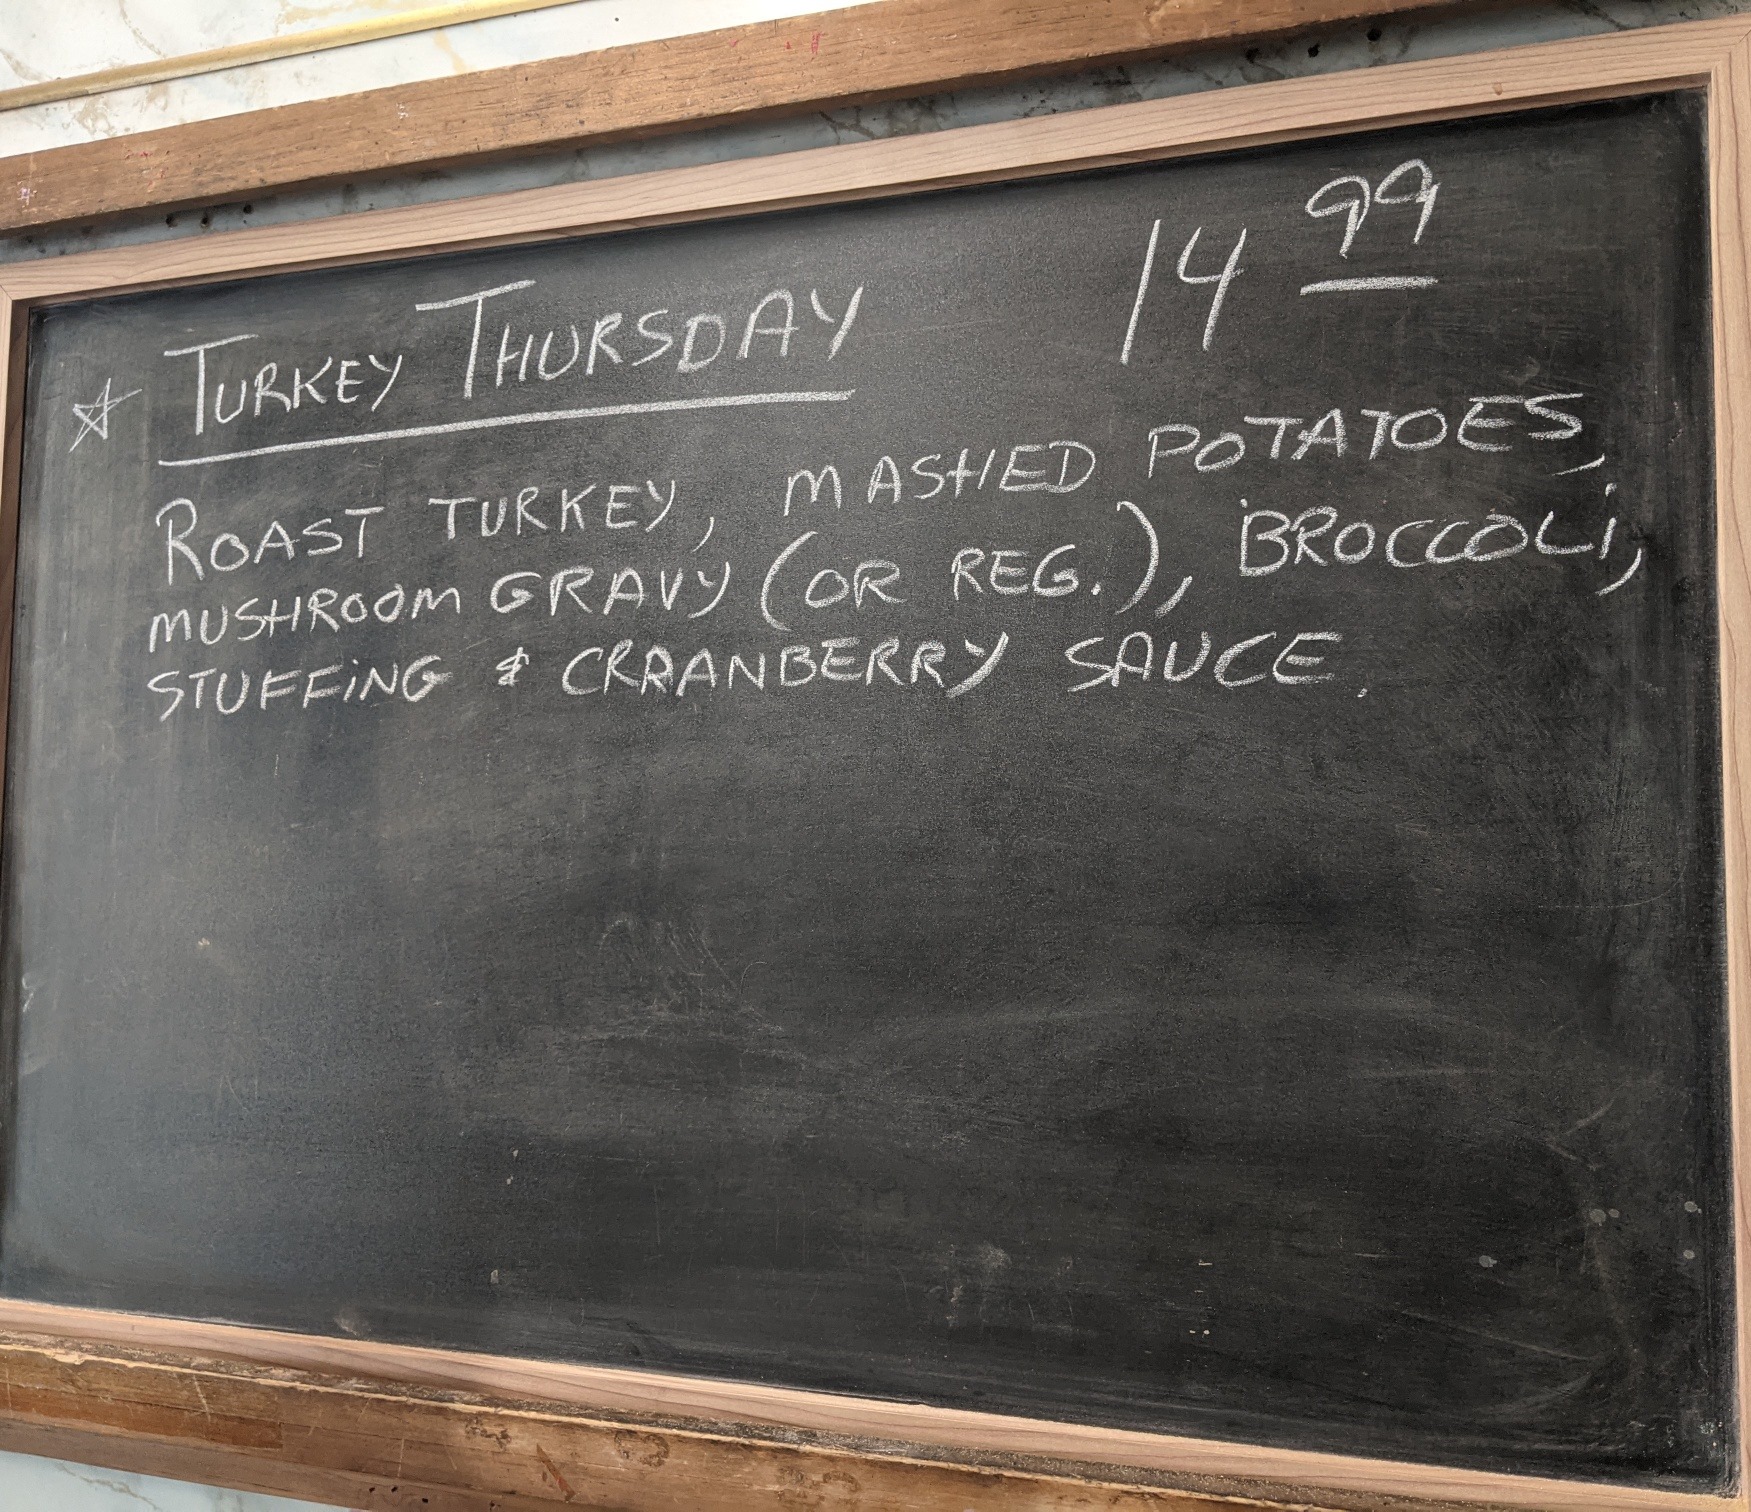 ☆ TURKEY THURSDAY 14 99
ROAST TURKEY, MASHED POTATOES,
MUSHROOM GRAVY (OR REG.), BROCCOLI,
STUFFING & CRRANBERRY SAUCE.